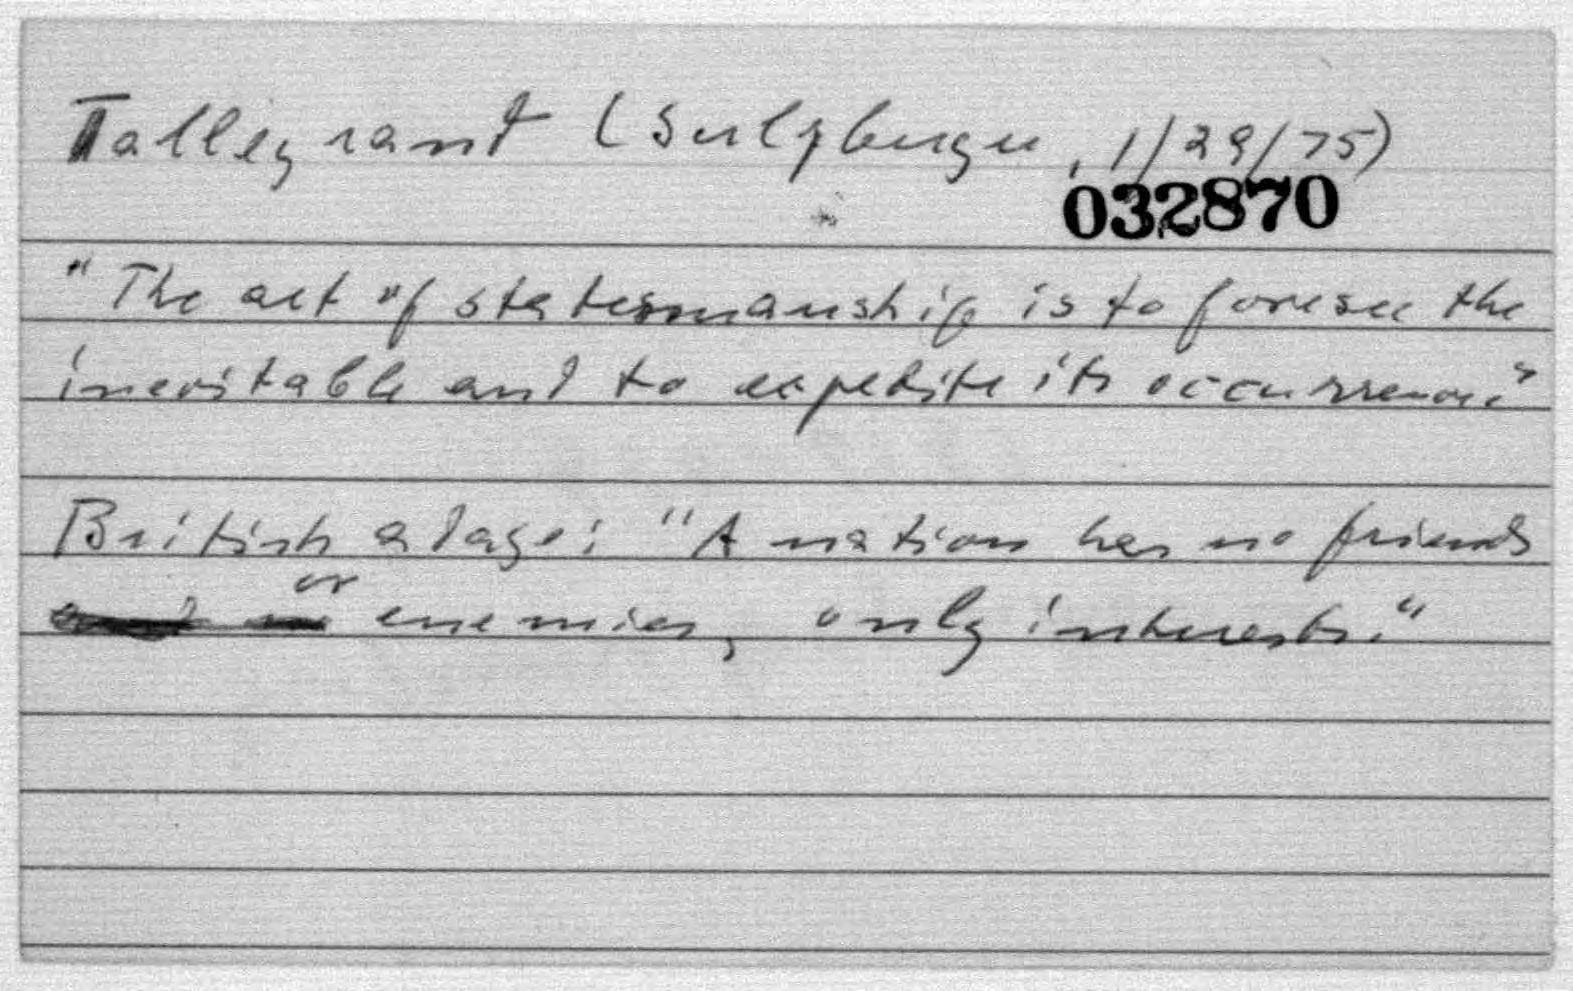 Talleyrand (Sulzberger, 1/29/75)
032870
"The art of statesmanship is to foresee the
inevitable and to expedite its occurrence."
British adage: "A nation has no friends
or
enemies, only interests."